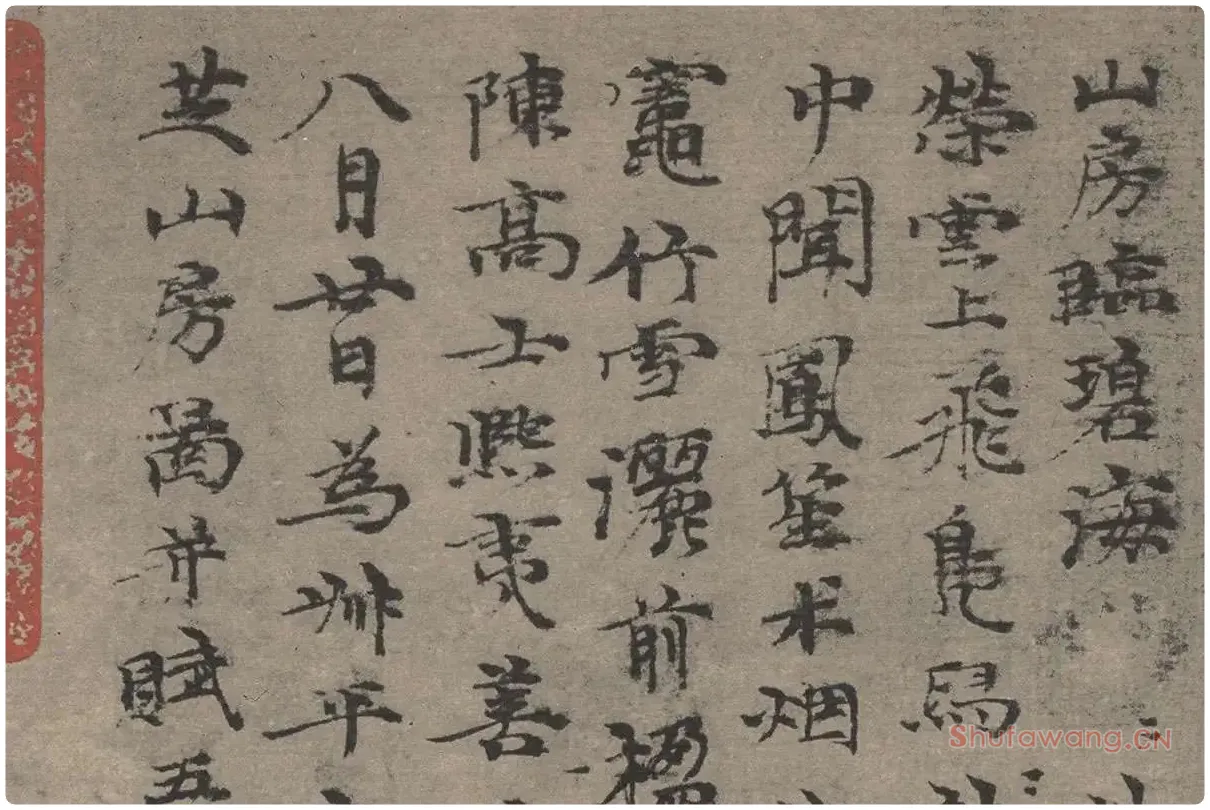 山房臨碧海
榮雲上飛鳧舄
中聞鳳笙术烟
竈竹雪灑前楹
陳高士熙夷善
八月廿日為艸平
芝山房啚并賦五
Shufawang.CN